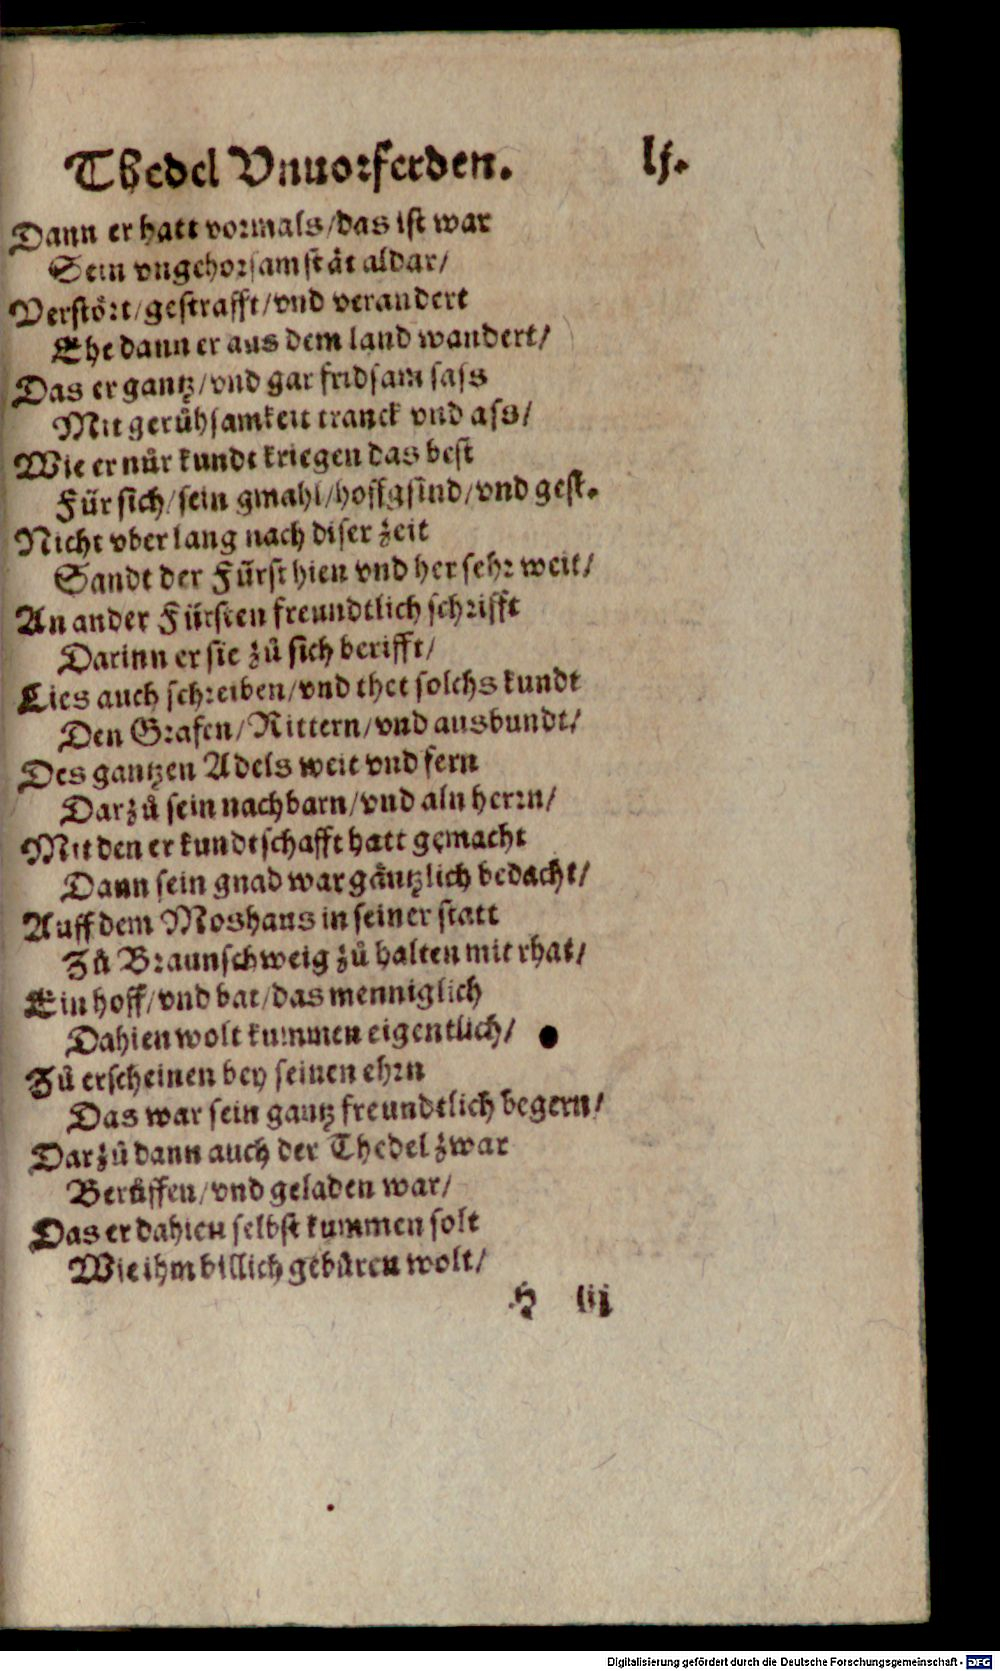 Thedel Vnuorferden. lj.
Dann er hatt vormals/das ist war
Sein vngehorsam stät aldar/
Verstört/gestrafft/vnd verandert
Ehe dann er aus dem land wandert/
Das er gantz/vnd gar fridsam sass
Mit gerůhsamkeit tranck vnd ass/
Wie er nůr kundt kriegen das best
Für sich/sein gmahl/hoffgsind/vnd gest.
Nicht vber lang nach diser zeit
Sandt der Fürst hien vnd her sehr weit/
An ander Fürsten freundtlich schrifft
Darinn er sie zů sich berifft/
Lies auch schreiben/vnd thet solchs kundt
Den Grafen/Rittern/vnd ausbundt/
Des gantzen Adels weit vnd fern
Darzů sein nachbarn/vnd aln herrn/
Mit den er kundtschafft hatt gemacht
Dann sein gnad war gäntzlich bedacht/
Auff dem Moshaus in seiner statt
Zů Braunschweig zů halten mit rhat/
Ein hoff/vnd bat/das menniglich
Dahien wolt kummen eigentlich/
Zů erscheinen bey seinen ehrn
Das war sein gantz freundtlich begern/
Darzů dann auch der Thedel zwar
Berůffen/vnd geladen war/
Das er dahien selbst kummen solt
Wie ihm billich gebüren wolt/
H iij
Digitalisierung gefördert durch die Deutsche Forschungsgemeinschaft - DFG